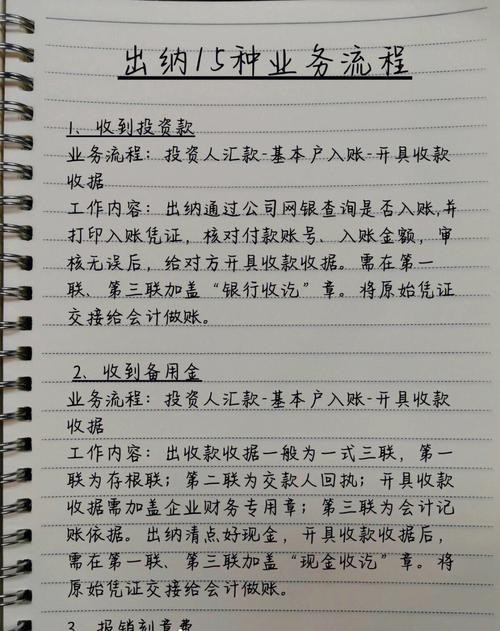 出纳15种业务流程
1、收到投资款
业务流程：投资人汇款-基本户入账-开具收款
收据
工作内容：出纳通过公司网银查询是否入账,并
打印入账凭证，核对付款账号、入账金额，审
核无误后，给对方开具收款收据。需在第一
联、第三联加盖“银行收讫”章。将原始凭证
交接给会计做账。
2、收到备用金
业务流程：投资人汇款-基本户入账-开具收款
收据
工作内容：出收款收据一般为一式三联，第一
联为存根联；第二联为交款人回执；开具收款
收据需加盖企业财务专用章；第三联为会计记
账依据。出纳清点好现金，开具收款收据后，
需在第一联、第三联加盖“现金收讫”章。将
原始凭证交接给会计做账。
3、报销刻章费